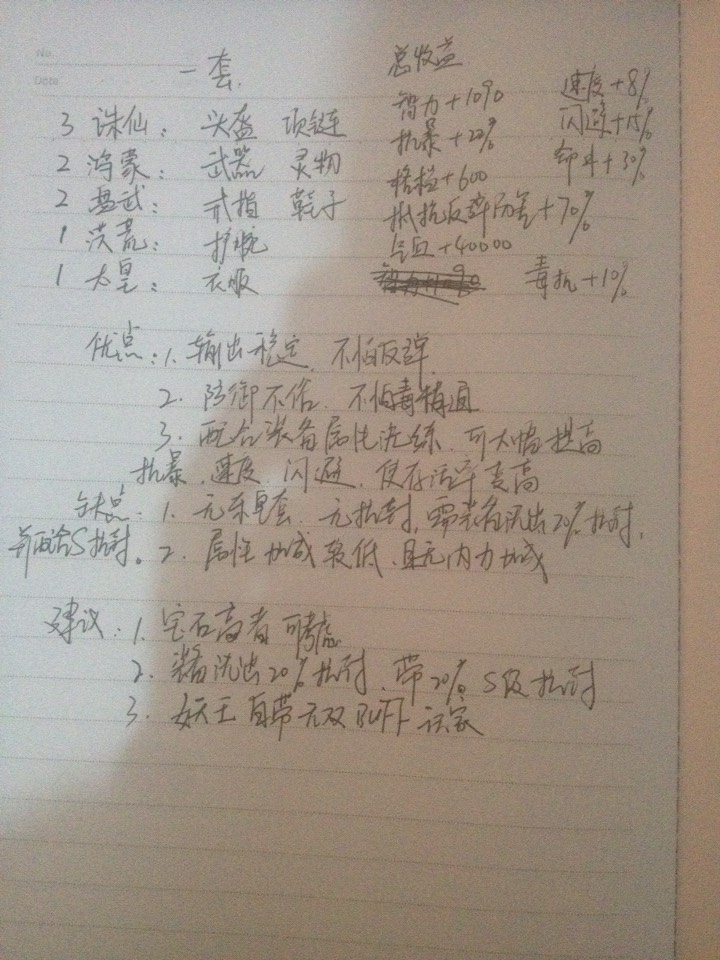 No.
Date
一套. 总收益
智力+10% 速度+8%
3 诛仙: 头盔 项链 抗暴+20% 闪避+15%
2 鸿蒙: 武器 灵物 格挡+600 命中+30%
2 盘武: 戒指 鞋子 抵抗反弹伤害+70%
1 洪荒: 护腕 气血+40000
1 太皇: 衣服 毒抗+10%
优点: 1. 输出稳定, 不怕反弹.
2. 防御不俗, 不怕毒精通
3. 配合装备属性洗练, 可大幅提高
抗暴、速度、闪避, 使存活率变高
缺点: 1. 无东皇套, 无抗封, 需装备洗出20%抗封,
并配合S抗封。 2. 属性加成较低, 且无内力加成
建议: 1. 宝石高者可考虑
2. 装备洗出20%抗封, 带20%S级抗封
3. 妖王自带无双BUFF玩家